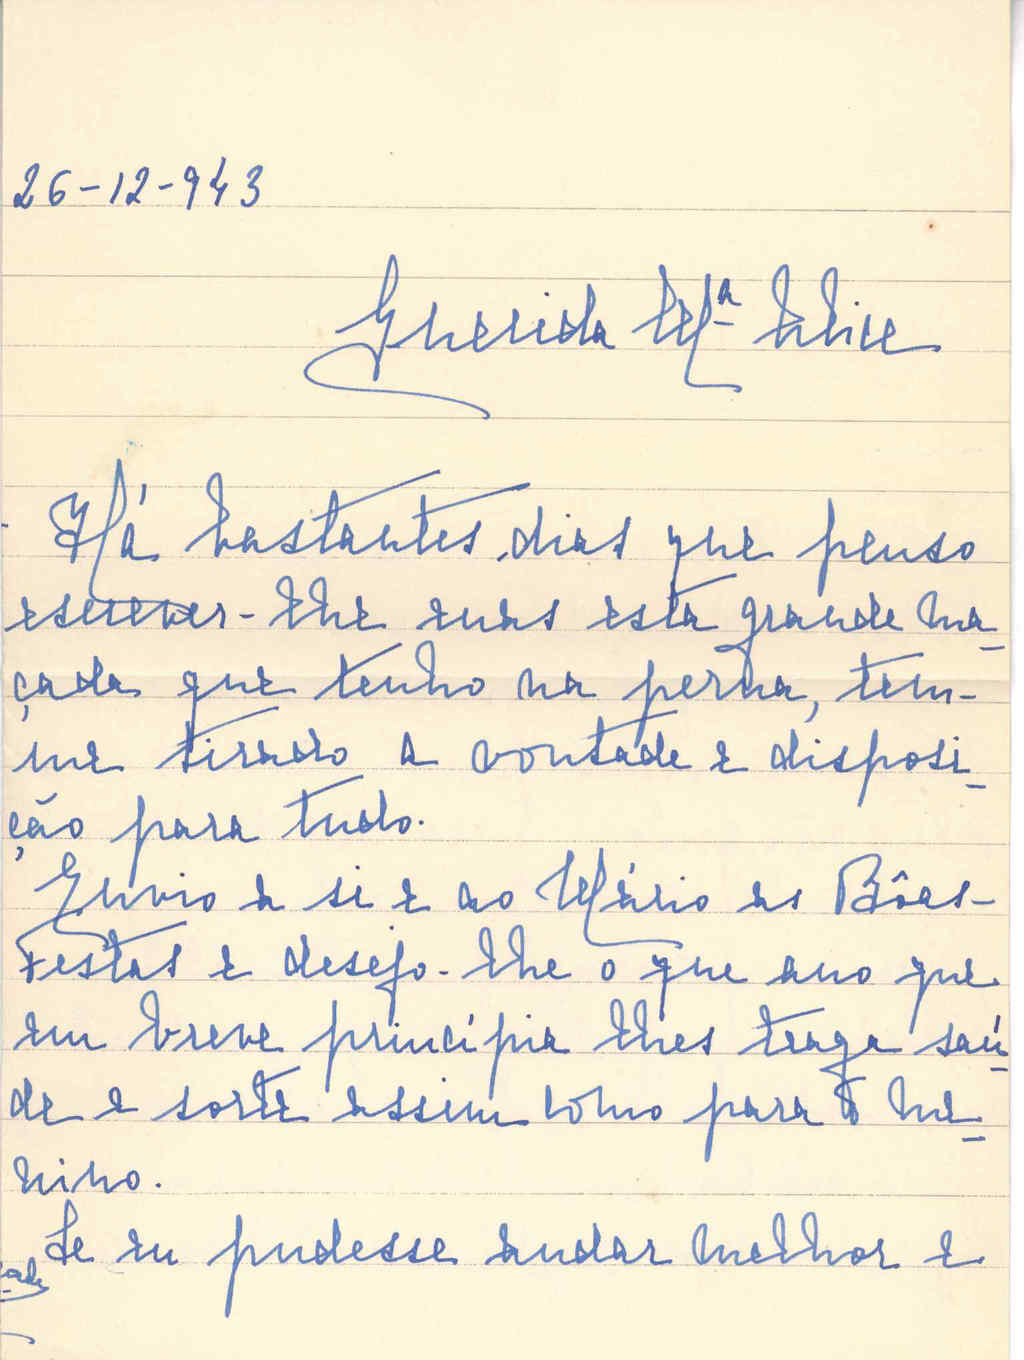 26-12-943
Querida Mª Alice
Há bastantes dias que penso
escrever-lhe mas esta grande ma_
çada que tenho na perna, tem-
me tirado a vontade e disposi_
ção para tudo.
Envio a si e ao Mário as Bôas-
Festas e desejo-lhe o que ano que
em breve principia lhes traga saú_
de e sorte assim como para o me_
nino.
Se eu pudesse andar melhor e